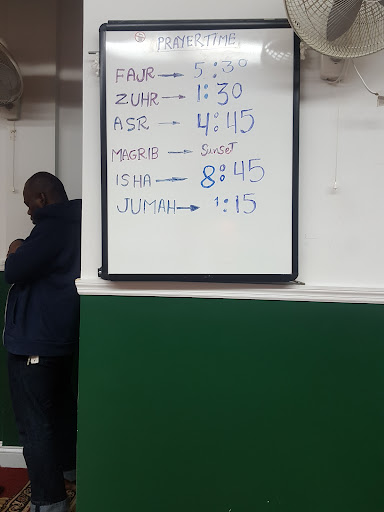 PRAYERTIME
FAJR → 5:30
ZUHR → 1:30
ASR → 4:45
MAGRIB → SunseT
ISHA → 8:45
JUMAH → 1:15